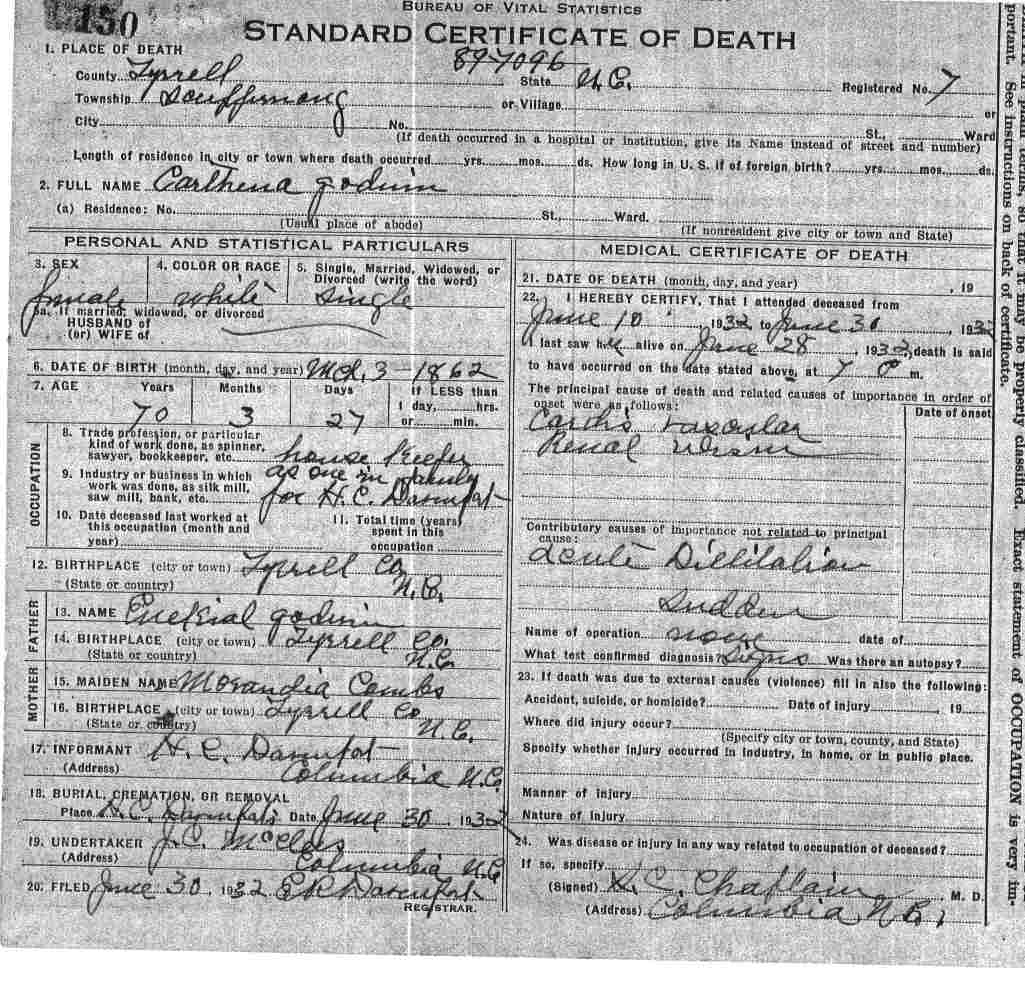 150
BUREAU OF VITAL STATISTICS
STANDARD CERTIFICATE OF DEATH
1. PLACE OF DEATH
897096
County Tyrrell State N.C. Registered No. 7
Township Scuppernong or Village or
City No. St., Ward
(If death occurred in a hospital or institution, give its Name instead of street and number)
Length of residence in city or town where death occurred yrs. mos. ds. How long in U. S. if of foreign birth? yrs. mos. ds.
2. FULL NAME Carthena Godwin
(a) Residence: No. St., Ward.
(Usual place of abode) (If nonresident give city or town and State)
PERSONAL AND STATISTICAL PARTICULARS
3. SEX
female
4. COLOR OR RACE
white
5. Single, Married, Widowed, or
Divorced (write the word)
Single
5a. If married, widowed, or divorced
HUSBAND of
(or) WIFE of
6. DATE OF BIRTH (month, day, and year) Mch. 3 - 1862
7. AGE Years Months Days If LESS than
1 day, hrs.
70 3 27 or min.
OCCUPATION
8. Trade profession, or particular
kind of work done, as spinner,
sawyer, bookkeeper, etc. house Keeper
9. Industry or business in which
work was done, as silk mill,
saw mill, bank, etc. as one in family
for H. C. Davenport
10. Date deceased last worked at
this occupation (month and
year)
11. Total time (years)
spent in this
occupation
12. BIRTHPLACE (city or town) Tyrrell Co
(State or country) N.C.
FATHER
13. NAME Godwin
14. BIRTHPLACE (city or town) Tyrrell Co.
(State or country) N.C.
MOTHER
15. MAIDEN NAME Combs
16. BIRTHPLACE (city or town) Tyrrell Co
(State or country) N.C.
17. INFORMANT H. C. Davenport
(Address) Columbia N.C.
18. BURIAL, CREMATION, OR REMOVAL
Place H.C. Davenport Date June 30, 1932
19. UNDERTAKER J.C. McClees
(Address) Columbia N.C
20. FILED June 30, 1932 Davenport
REGISTRAR.
MEDICAL CERTIFICATE OF DEATH
21. DATE OF DEATH (month, day, and year) , 19
22. I HEREBY CERTIFY, That I attended deceased from
June 10, 1932, to June 30, 1932
I last saw her alive on June 28, 1932, death is said
to have occurred on the date stated above, at 7 P m.
The principal cause of death and related causes of importance in order of
onset were as follows: Date of onset
Cardio vascular
Renal
Contributory causes of importance not related to principal
cause:
acute Dillitation
Sudden
Name of operation none date of
What test confirmed diagnosis Signs Was there an autopsy?
23. If death was due to external causes (violence) fill in also the following:
Accident, suicide, or homicide? Date of injury , 19
Where did injury occur?
(Specify city or town, county, and State)
Specify whether injury occurred in industry, in home, or in public place.
Manner of injury
Nature of injury
24. Was disease or injury in any way related to occupation of deceased?
If so, specify
(Signed) Chaplain, M. D.
(Address) Columbia N.C.
so that it may be properly classified. Exact statement of OCCUPATION is very im-
portant. See instructions on back of certificate.